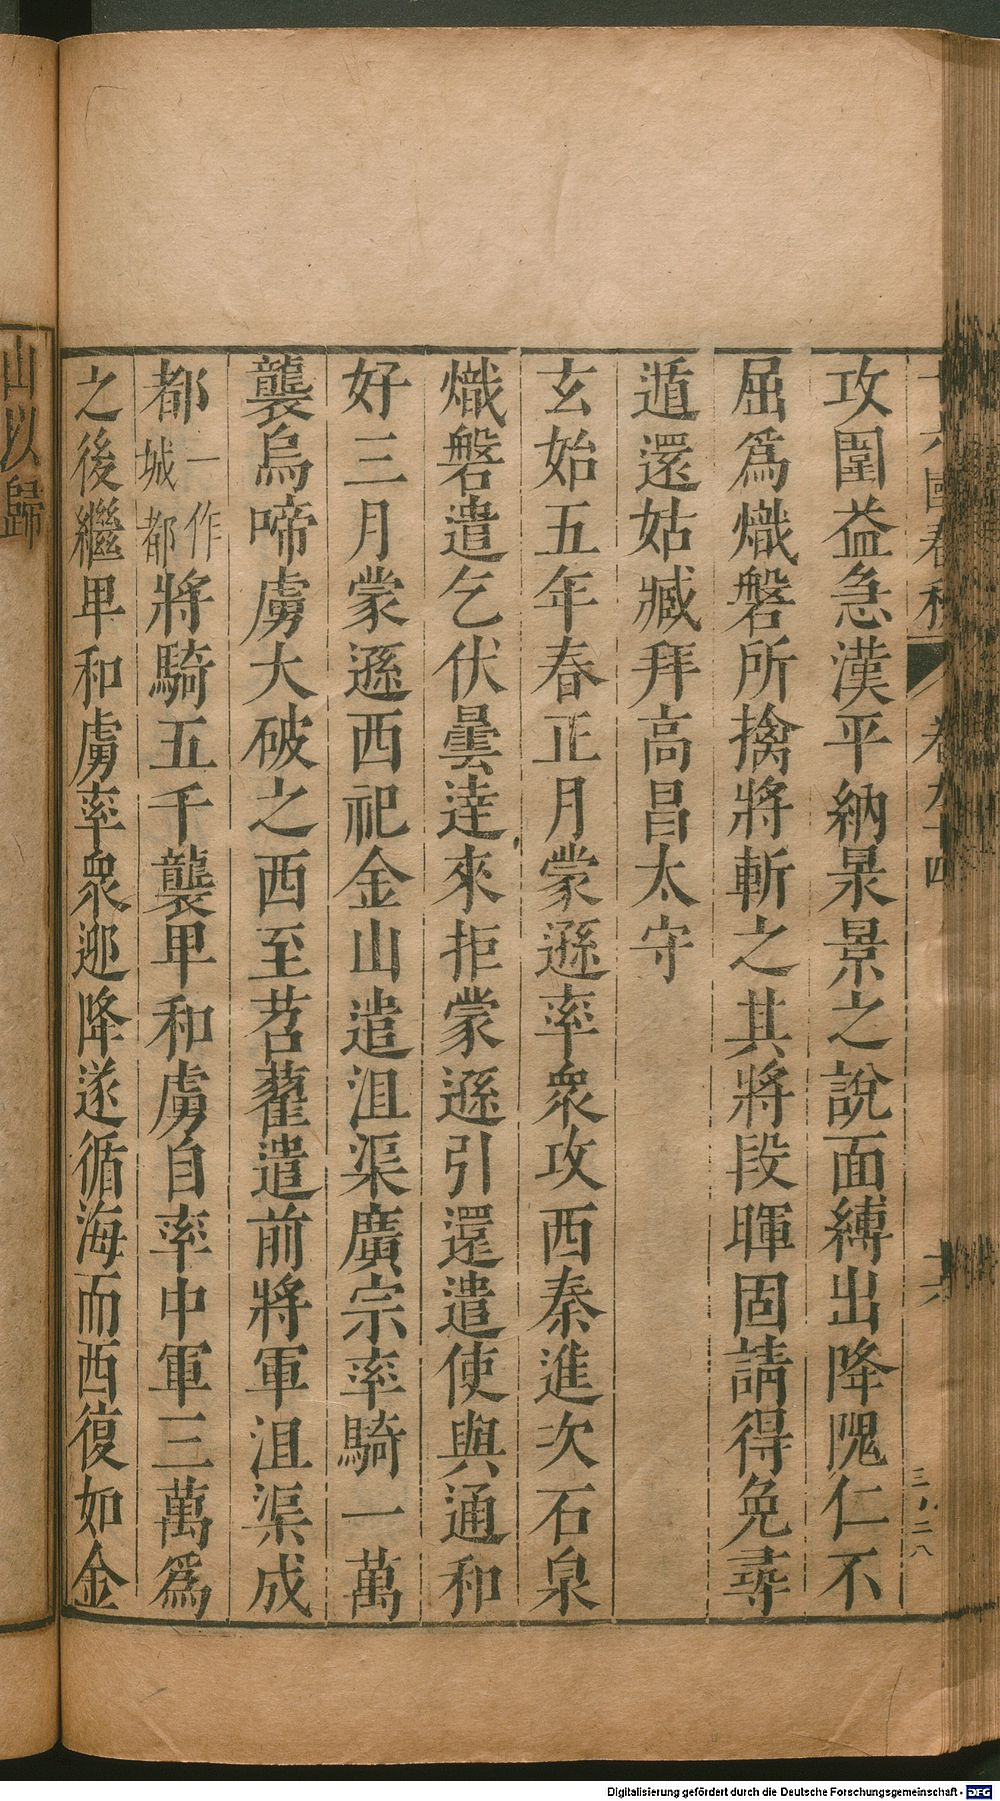 十六國春秋 卷九十四 十六 三八二八
攻圍益急漢平納㬎景之說面縛出降隗仁不
屈爲熾磐所擒將斬之其將段暉固請得免尋
遁還姑臧拜高昌太守
玄始五年春正月蒙遜率衆攻西秦進次石泉
熾磐遣乞伏曇達來拒蒙遜引還遣使與通和
好三月蒙遜西祀金山遣沮渠廣宗率騎一萬
襲烏啼虜大破之西至苕藋遣前將軍沮渠成
都一作城都將騎五千襲卑和虜自率中軍三萬爲
之後繼卑和虜率衆迎降遂循海而西復如金
山以歸
Digitalisierung gefördert durch die Deutsche Forschungsgemeinschaft - DFG